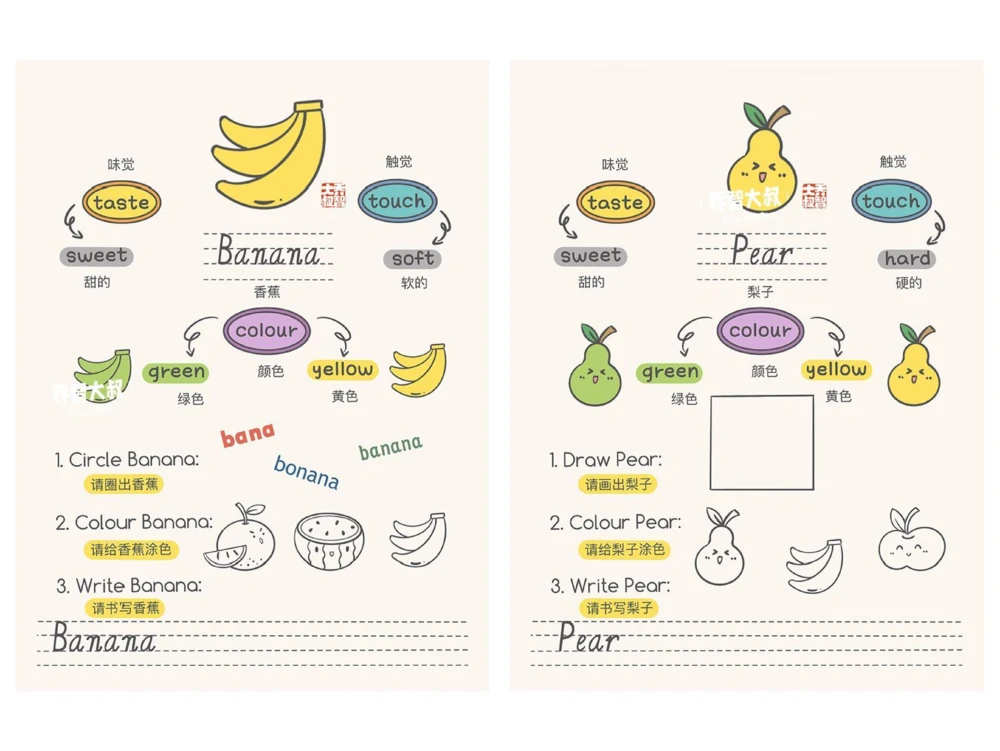 味觉
触觉
taste
touch
sweet
Banana
soft
甜的
香蕉
软的
colour
green
yellow
颜色
绿色
黄色
乔智大叔
bana
bonana
banana
1. Circle Banana:
请圈出香蕉
2. Colour Banana:
请给香蕉涂色
3. Write Banana:
请书写香蕉
Banana
味觉
触觉
taste
touch
乔智大叔
sweet
Pear
hard
甜的
梨子
硬的
colour
green
yellow
颜色
绿色
黄色
1. Draw Pear:
请画出梨子
2. Colour Pear:
请给梨子涂色
3. Write Pear:
请书写梨子
Pear